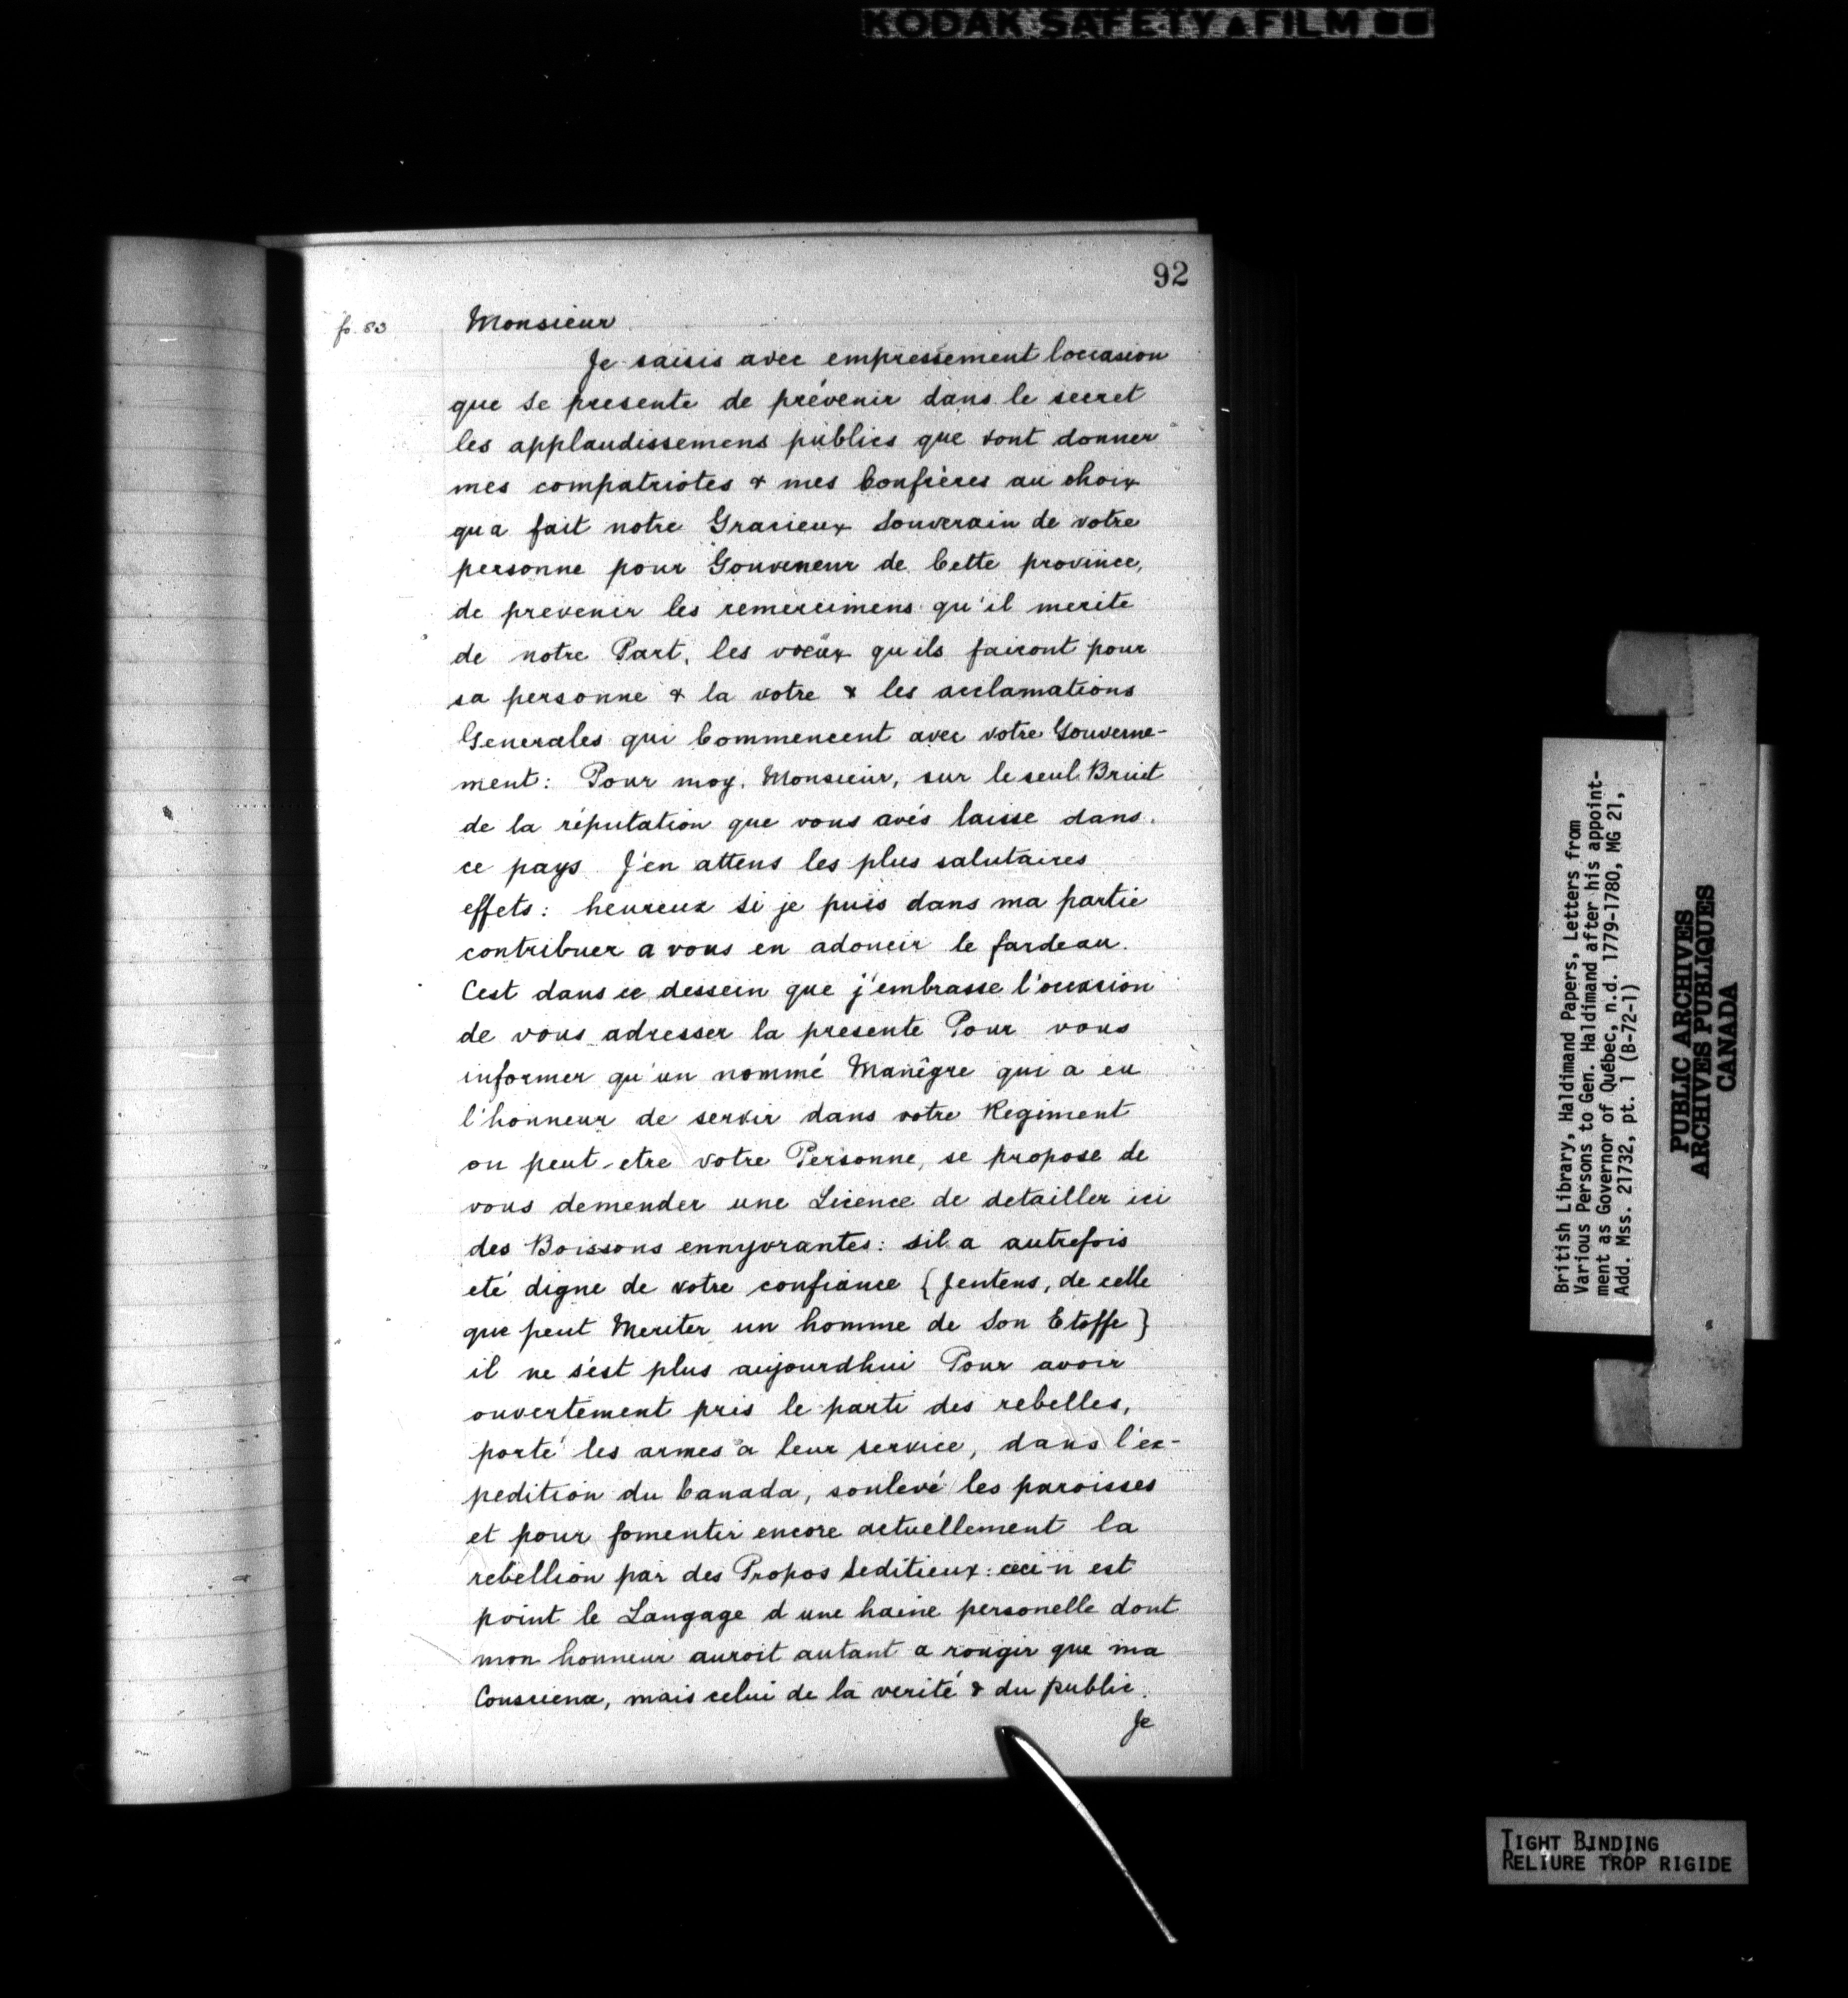 KODAK SAFETY FILM
92
fo. 83
Monsieur
Je saisis avec empressement loccasion
que se presente de prévenir dans le secret
les applaudissemens publics que vont donner
mes compatriotes & mes Confrères au choix
qu a fait notre Gracieux Souverain de votre
personne pour Gouveneur de Cette province,
de prevenir les remercimens qu'il merite
de notre Part, les voeux qu ils fairont pour
sa personne & la votre & les acclamations
Generales qui Commencent avec votre Gouverne-
ment: Pour moy, Monsieur, sur le seul Bruit
de la réputation que vous avés laisse dans
ce pays J'en attens les plus salutaires
effets: heureux si je puis dans ma partie
contribuer a vous en adoucir le fardeau.
Cest dans ce dessein que j'embrasse l'occasion
de vous adresser la presente Pour vous
informer qu'un nommé Manêgre qui a eu
l'honneur de servir dans votre Regiment
ou peut-etre votre Personne, se propose de
vous demender une Licence de detailler ici
des Boissons ennyvrantes: sil a autrefois
eté digne de votre confiance {Jentens, de celle
que peut Meriter un homme de Son Etoffe}
il ne s'est plus aujourdhui Pour avoir
ouvertement pris le parti des rebelles,
porté les armes a leur service, dans l'ex-
pedition du Canada, soulevé les paroisses
et pour fomenter encore actuellement la
rebellion par des Propos Seditieux: ceci n est
point le Langage d une haine personelle dont
mon honneur auroit autant a rougir que ma
Conscience, mais celui de la verité & du public.
Je
British Library, Haldimand Papers, Letters from
Various Persons to Gen. Haldimand after his appoint-
ment as Governor of Québec, n.d. 1779-1780, MG 21,
Add. Mss. 21732, pt. 1 (B-72-1)
PUBLIC ARCHIVES
ARCHIVES PUBLIQUES
CANADA
TIGHT BINDING
RELIURE TROP RIGIDE